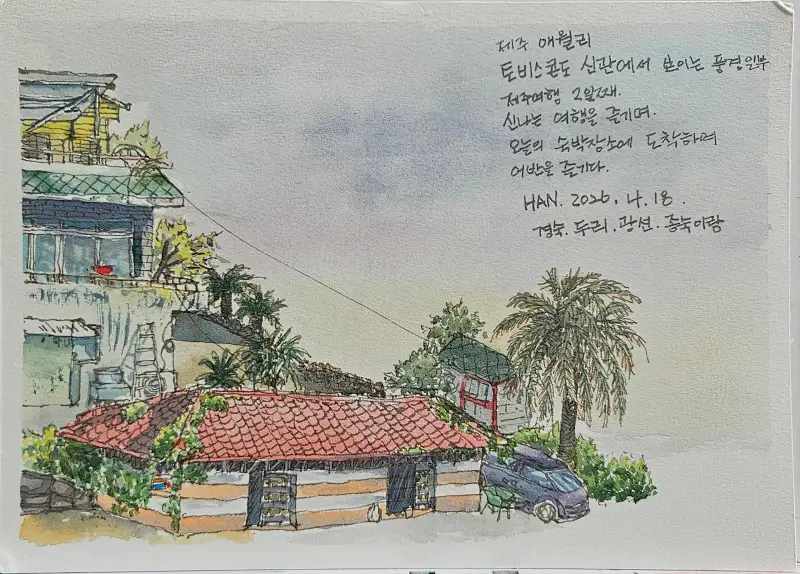 제주 애월리
토비스콘도 신관에서 보이는 풍경일부
제주여행 2일째.
신나는 여행을 즐기며.
오늘의 숙박장소에 도착하여
어반을 즐기다.
HAN. 2026. 4. 18.
경숙. 두리. 광선. 종숙이랑